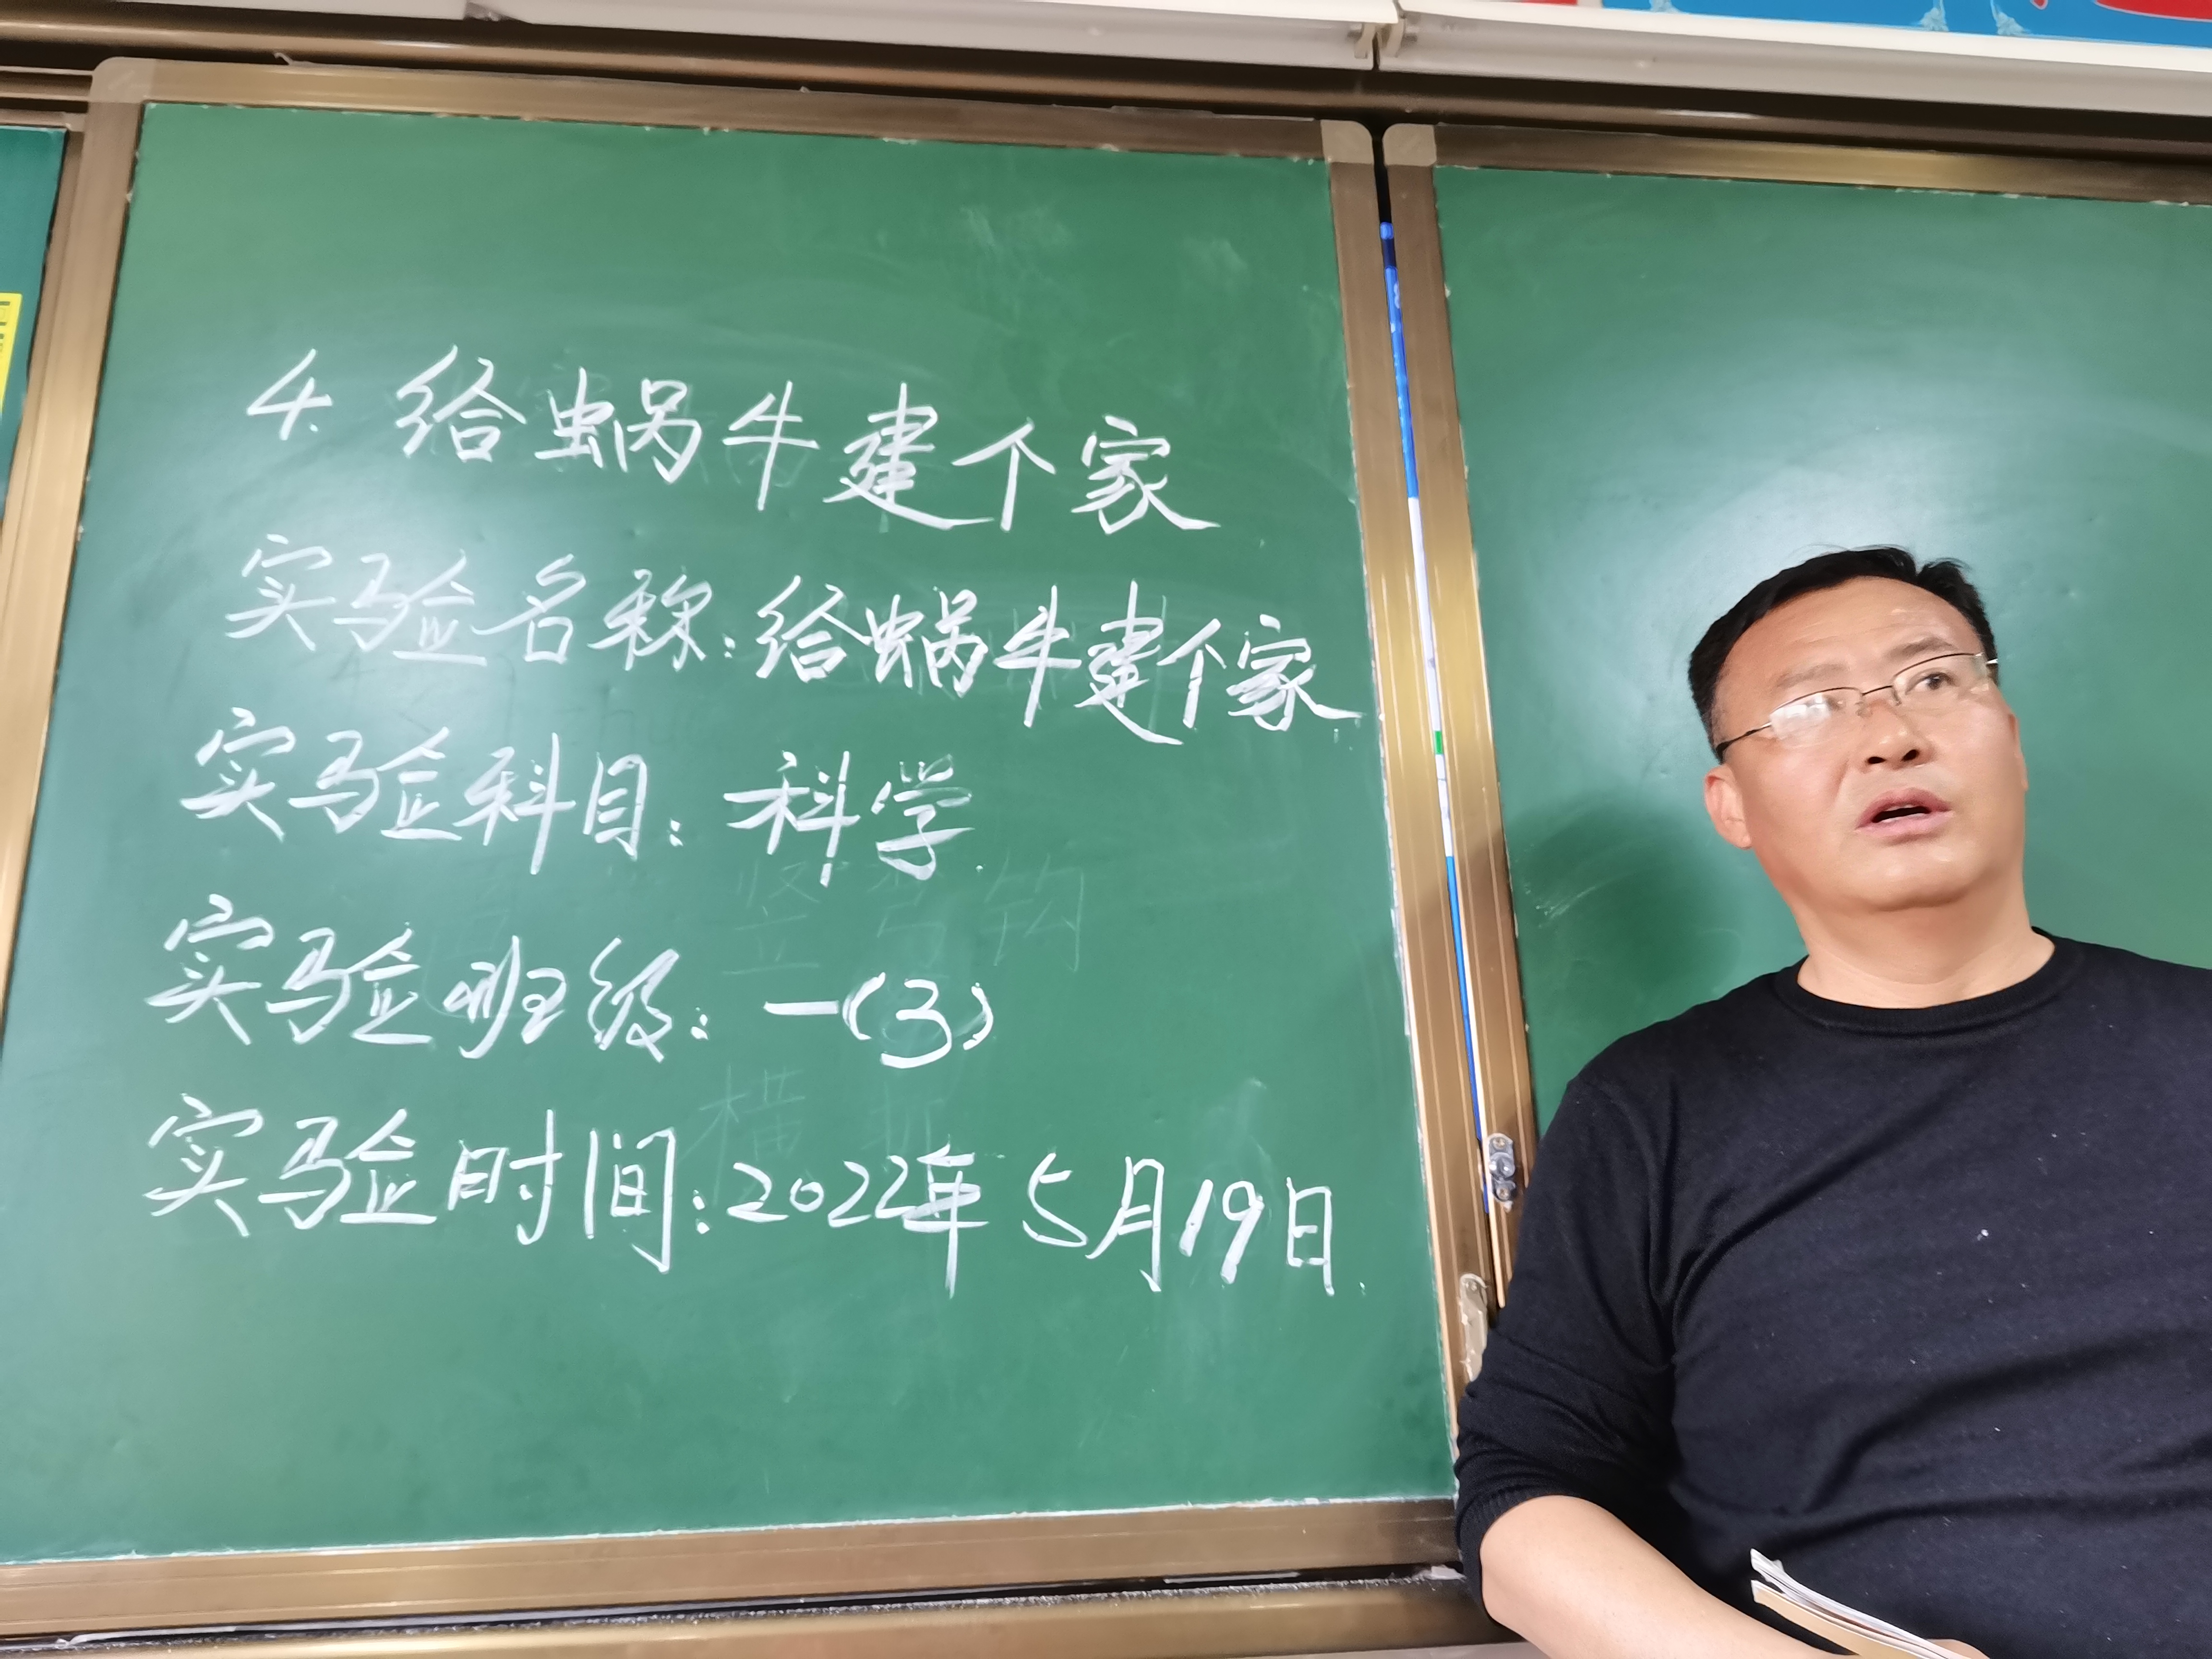 4. 给蜗牛建个家
实验名称:给蜗牛建个家
实验科目:科学
实验班级:一(3)
实验时间:2022年5月19日